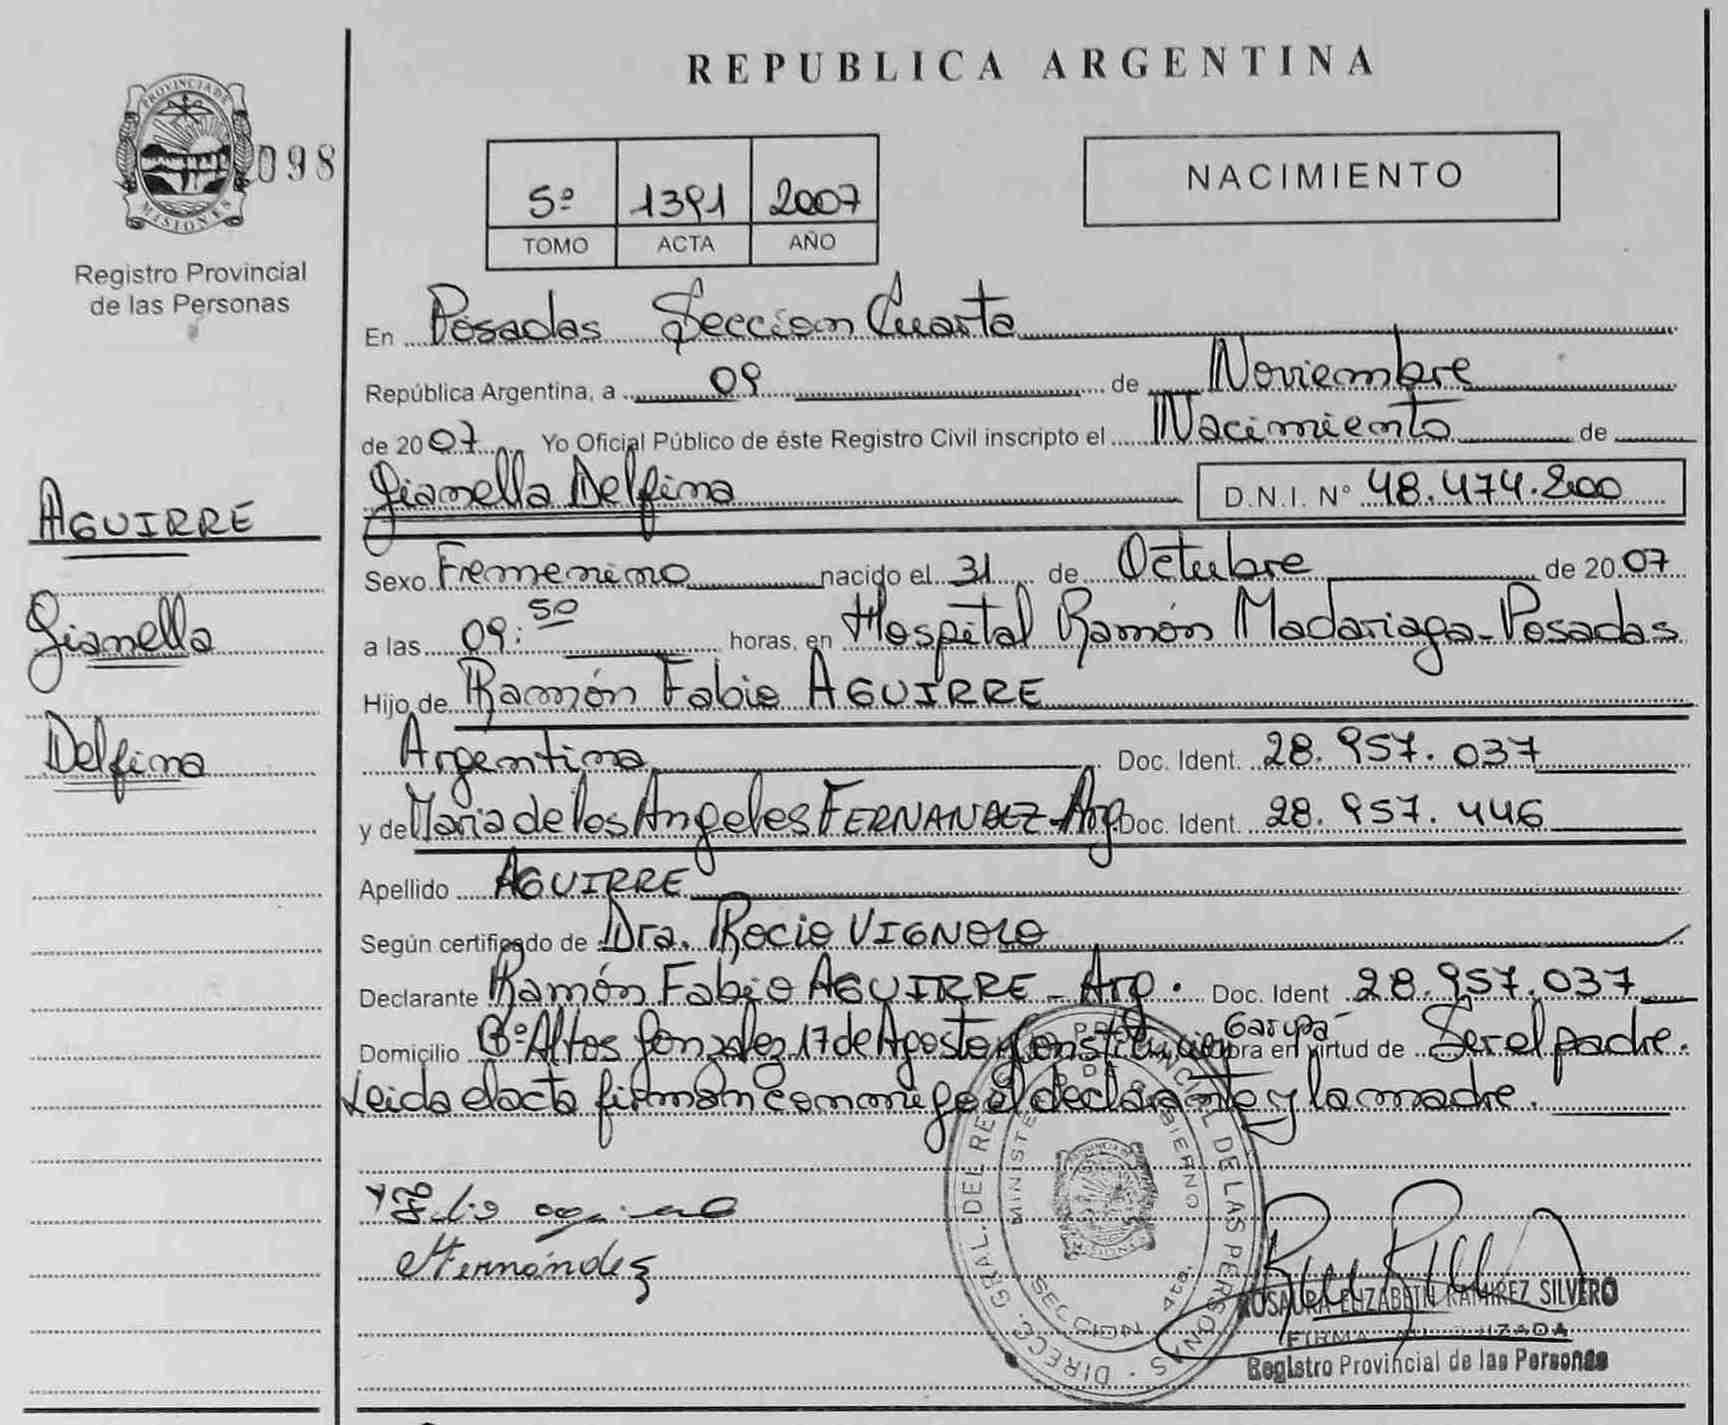 REPUBLICA ARGENTINA
PROVINCIA DE MISIONES
098
Registro Provincial
de las Personas
5º 1391 2007
TOMO ACTA AÑO
NACIMIENTO
En Posadas Seccion Cuarta
República Argentina, a 09 de Noviembre
de 2007 Yo Oficial Público de éste Registro Civil inscripto el Nacimiento de
Gianella Delfina D.N.I. N° 48.474.200
AGUIRRE
Gianella
Delfina
Sexo Femenino nacido el 31 de Octubre de 2007
a las 09:50 horas, en Hospital Ramón Madariaga - Posadas
Hijo de Ramón Fabio AGUIRRE
Argentina Doc. Ident. 28.957.037
y de Maria de los Angeles FERNANDEZ - Arg. Doc. Ident. 28.957.446
Apellido AGUIRRE
Según certificado de Dra. Rocio VIGNOLO
Declarante Ramón Fabio AGUIRRE - Arg. Doc. Ident 28.957.037
Domicilio Bº Altos Gonzalez 17 de Agosto y Constitución Garupá obra en virtud de Ser el padre.
Leida el acta firman conmigo el declarante y la madre.
Fernández
DIREC. GRAL. DEL REG. PROVINCIAL DE LAS PERSONAS
MINISTERIO DE GOBIERNO
SECCION 4ta.
ROSAURA ELIZABETH RAMIREZ SILVERO
FIRMA AUTORIZADA
Registro Provincial de las Personas